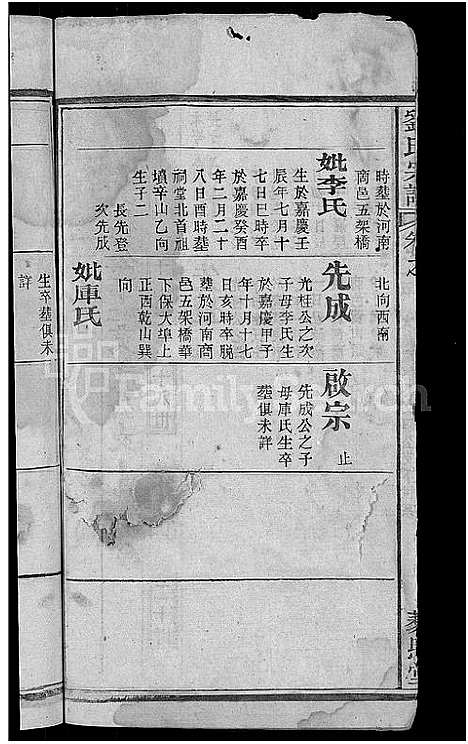 劉氏宗譜
時葬於河南
商邑五架橋
妣李氏
生於嘉慶壬
辰年七月十
七日巳時卒
於嘉慶癸酉
年二月二十
八日酉時葬
祠堂北首祖
墳辛山乙向
生子二
長先登
次先成
北向西南
先成
光柱公之次
子母李氏生
於嘉慶甲子
年十月十七
日亥時卒脱
葬於河南商
邑五架橋華
下保大埠上
正酉乾山巽
向
妣庫氏
啟宗
止
先成公之子
母庫氏生卒
葬俱未詳
生卒葬俱未
詳
FamilySearch